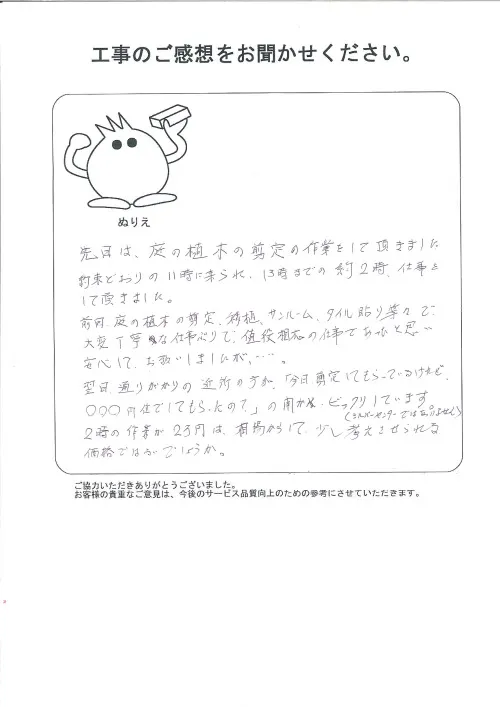 工事のご感想をお聞かせください。
ぬりえ
先日は、庭の植木の剪定の作業をして頂きました
約束どおりの11時に来られ、13時までの約2時、仕事を
して頂きました。
前回、庭の植木の剪定、移植、サンルーム、タイル貼り等々で
大変丁寧な仕事ぶりで、値段相応の仕事であったと思い
安心して、お払いしましたが、…。
翌日、通りがかりの近所の方が、「今日剪定してもらっているけれど、
〇〇〇円位でしてもらったの?」の聞かれ、ビックリしています。
(シルバーセンターではありません)
2時の作業が2.3万円は、相場からして、少し考えさせられる
価格ではないでしょうか。
ご協力いただきありがとうございました。
お客様の貴重なご意見は、今後のサービス品質向上のための参考にさせていただきます。